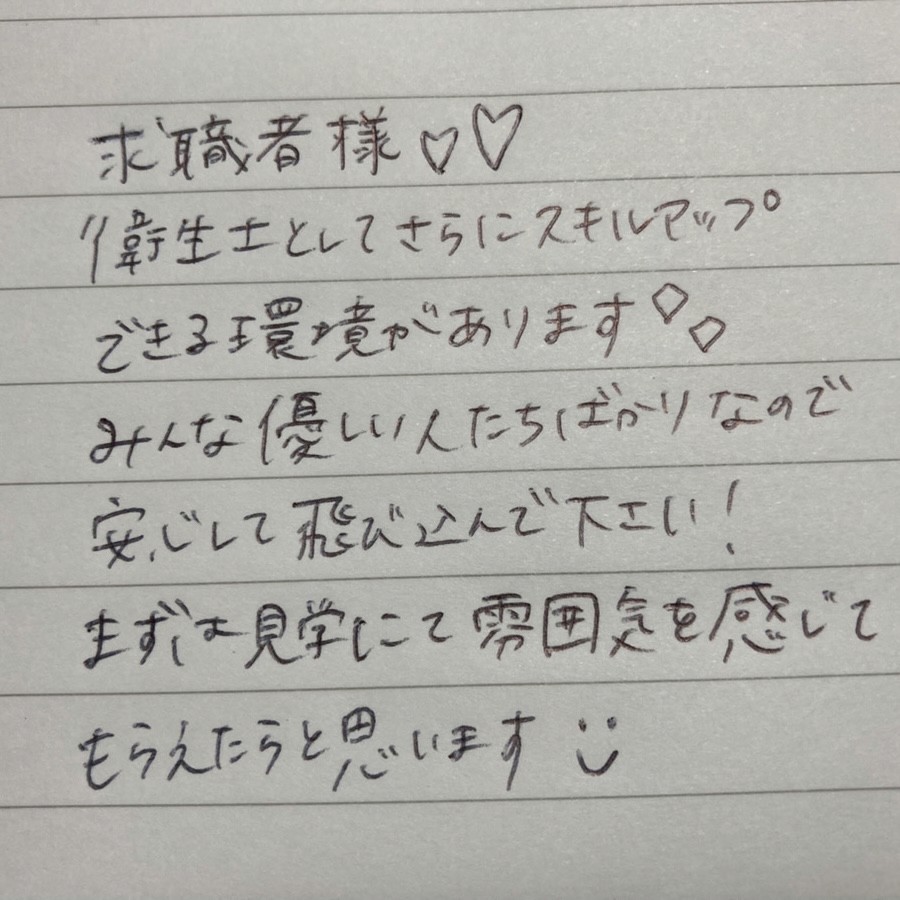 求職者様♡♡
衛生士としてさらにスキルアップ
できる環境があります◇◇
みんな優しい人たちばかりなので
安心して飛び込んで下さい!
まずは見学にて雰囲気を感じて
もらえたらと思います